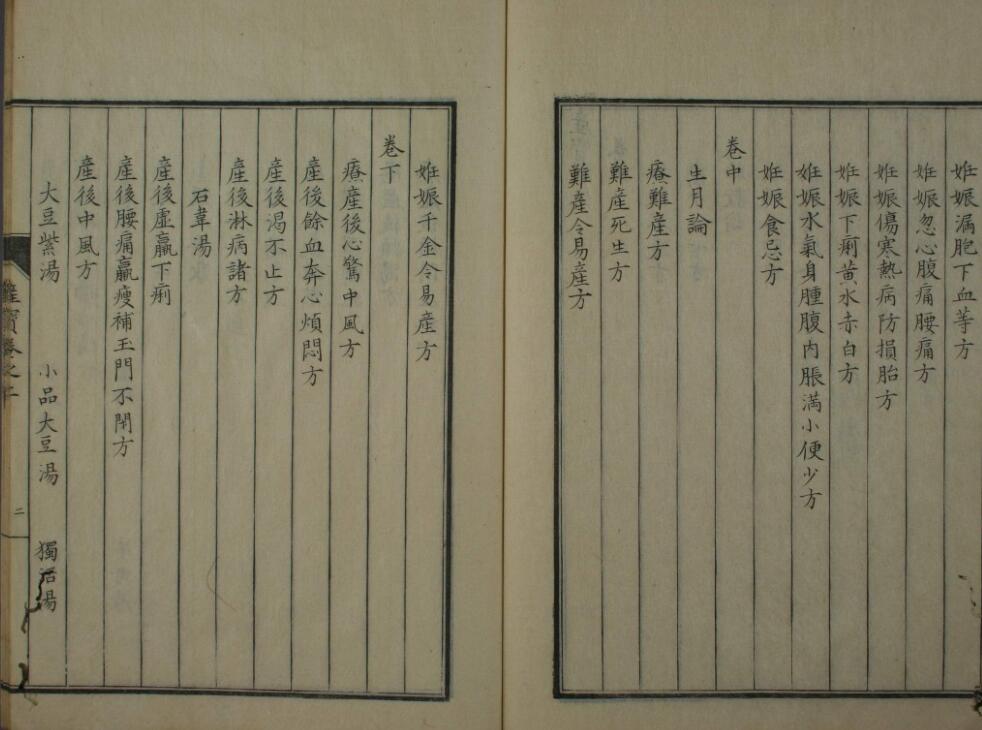 姙娠漏胞下血等方
姙娠忽心腹痛腰痛方
姙娠傷寒熱病防損胎方
姙娠下痢黄水赤白方
姙娠水氣身腫腹内脹満小便少方
姙娠食忌方
卷中
生月論
療難産方
難産死生方
難産令易産方
姙娠千金令易産方
卷下
療産後心驚中風方
産後餘血奔心煩悶方
産後渴不止方
産後淋病諸方
石韋湯
産後虚羸下痢
産後腰痛羸瘦補玉門不閇方
産後中風方
大豆紫湯 小品大豆湯 獨活湯
寶卷之
二